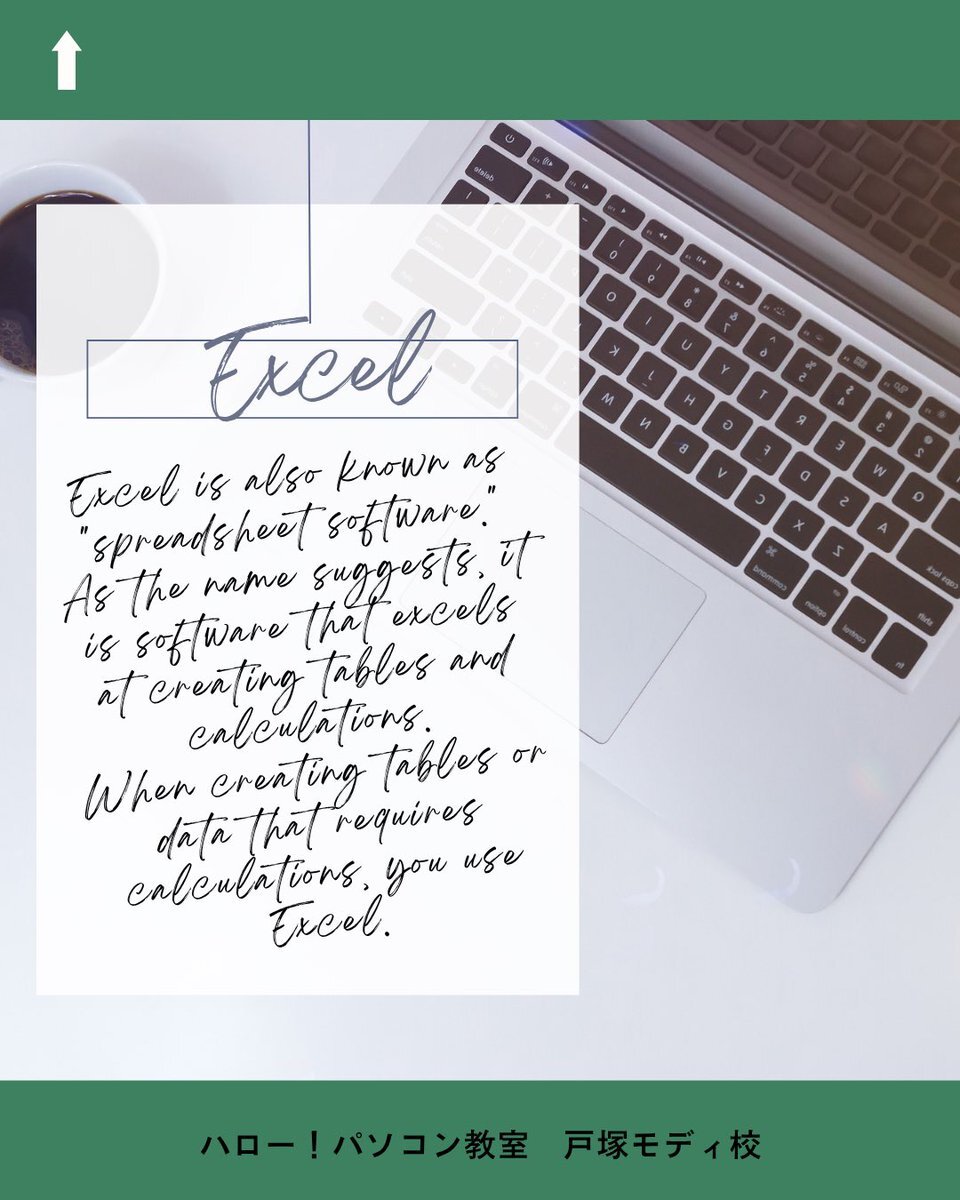 Excel
Excel is also known as
"spreadsheet software."
As the name suggests, it
is software that excels
at creating tables and
calculations.
When creating tables or
data that requires
calculations, you use
Excel.
ハロー！パソコン教室　戸塚モディ校